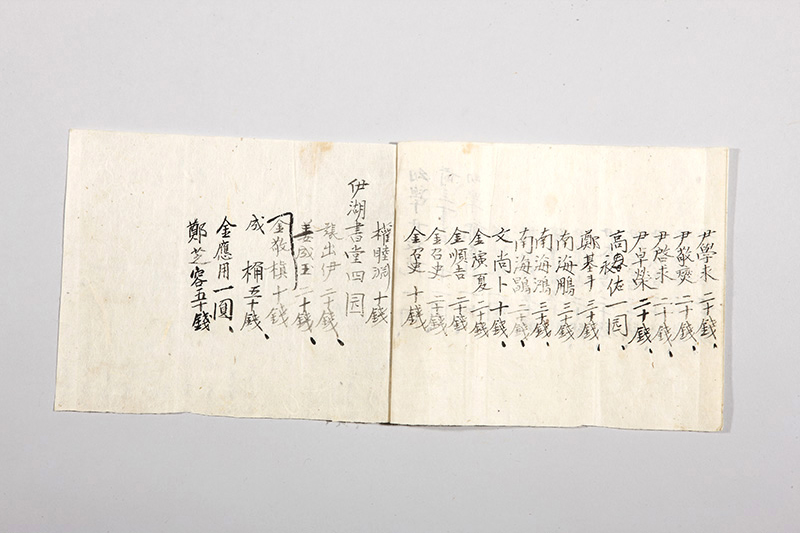 尹學夫 二十錢、
尹敬奭 二十錢、
尹啓夫 二十錢、
尹卓榮 二十錢、
高祿佐 一园、
鄭基斗 三十錢、
南海鵬 三十錢
南海鴻 三十錢
南海鶚 二十錢、
文尚卜 十錢、
金演夏 二十錢
金順吉 二十錢
金召史 二十錢
金召史 十錢
權睦淵 十錢
伊湖書堂四园
出伊 二十錢、
姜成玉 二十錢、
金敬楨 十錢
成桶五十錢、
金應用一圓、
鄭芝容五十錢